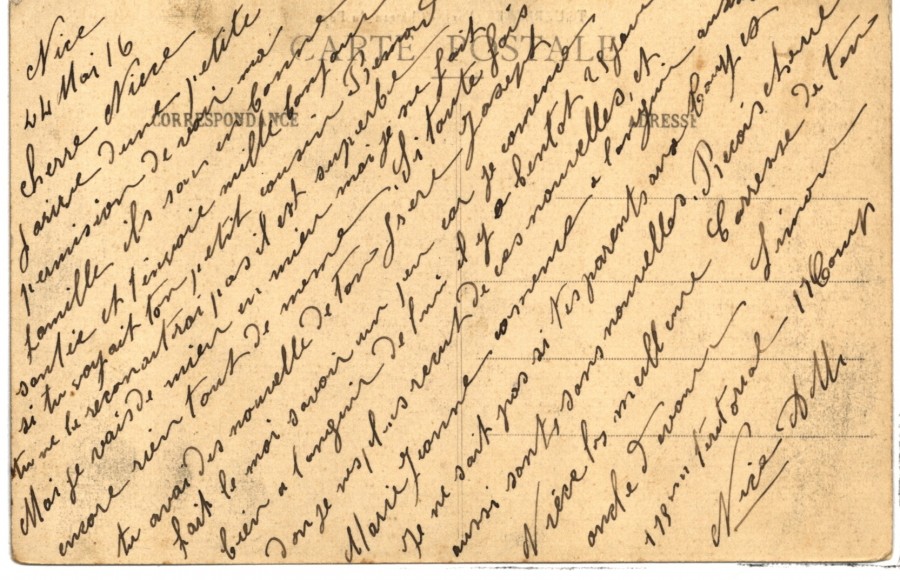 CARTE POSTALE
CORRESPONDANCE
ADRESSE
Nice
24 Mai 16
Cherre Niece
j'arive d'une petite
permision de voir ma
famille ils son en bonne
santée et t'envoie mille bonjour
si tu voyait ton petit cousin Fernand
tu ne le reconaitrai pas il est superbe
Moi je vais de mieu en mieu mai je ne fait
encore rien tout de meme. Si toute fois
tu avai des nouvelle de ton frere Joseph
fait le moi savoir un peu car je comence
bien a languir de lui il y a bentot 15 jour
don je nes plus recut de ces nouvelles, et
Marie Jeanne comence a languir aussi
Je ne sait pas si tes parents aux Couyes
aussi sont sans nouvelles. Recois cherre
Nièce les meilleure Carresse de ton
oncle devoué Simon
118me téritorial 11 Comp
Nice A M